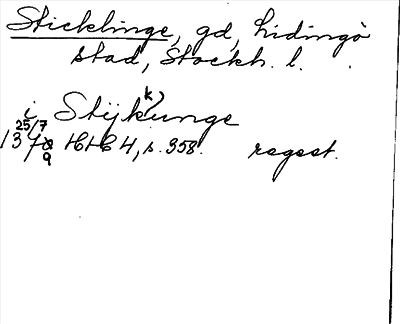 Sticklinge, gd, Lidingö
stad, Stockh. l.
i Stijkunge k)
25/7
1379 HH 4, s. 358. regest.